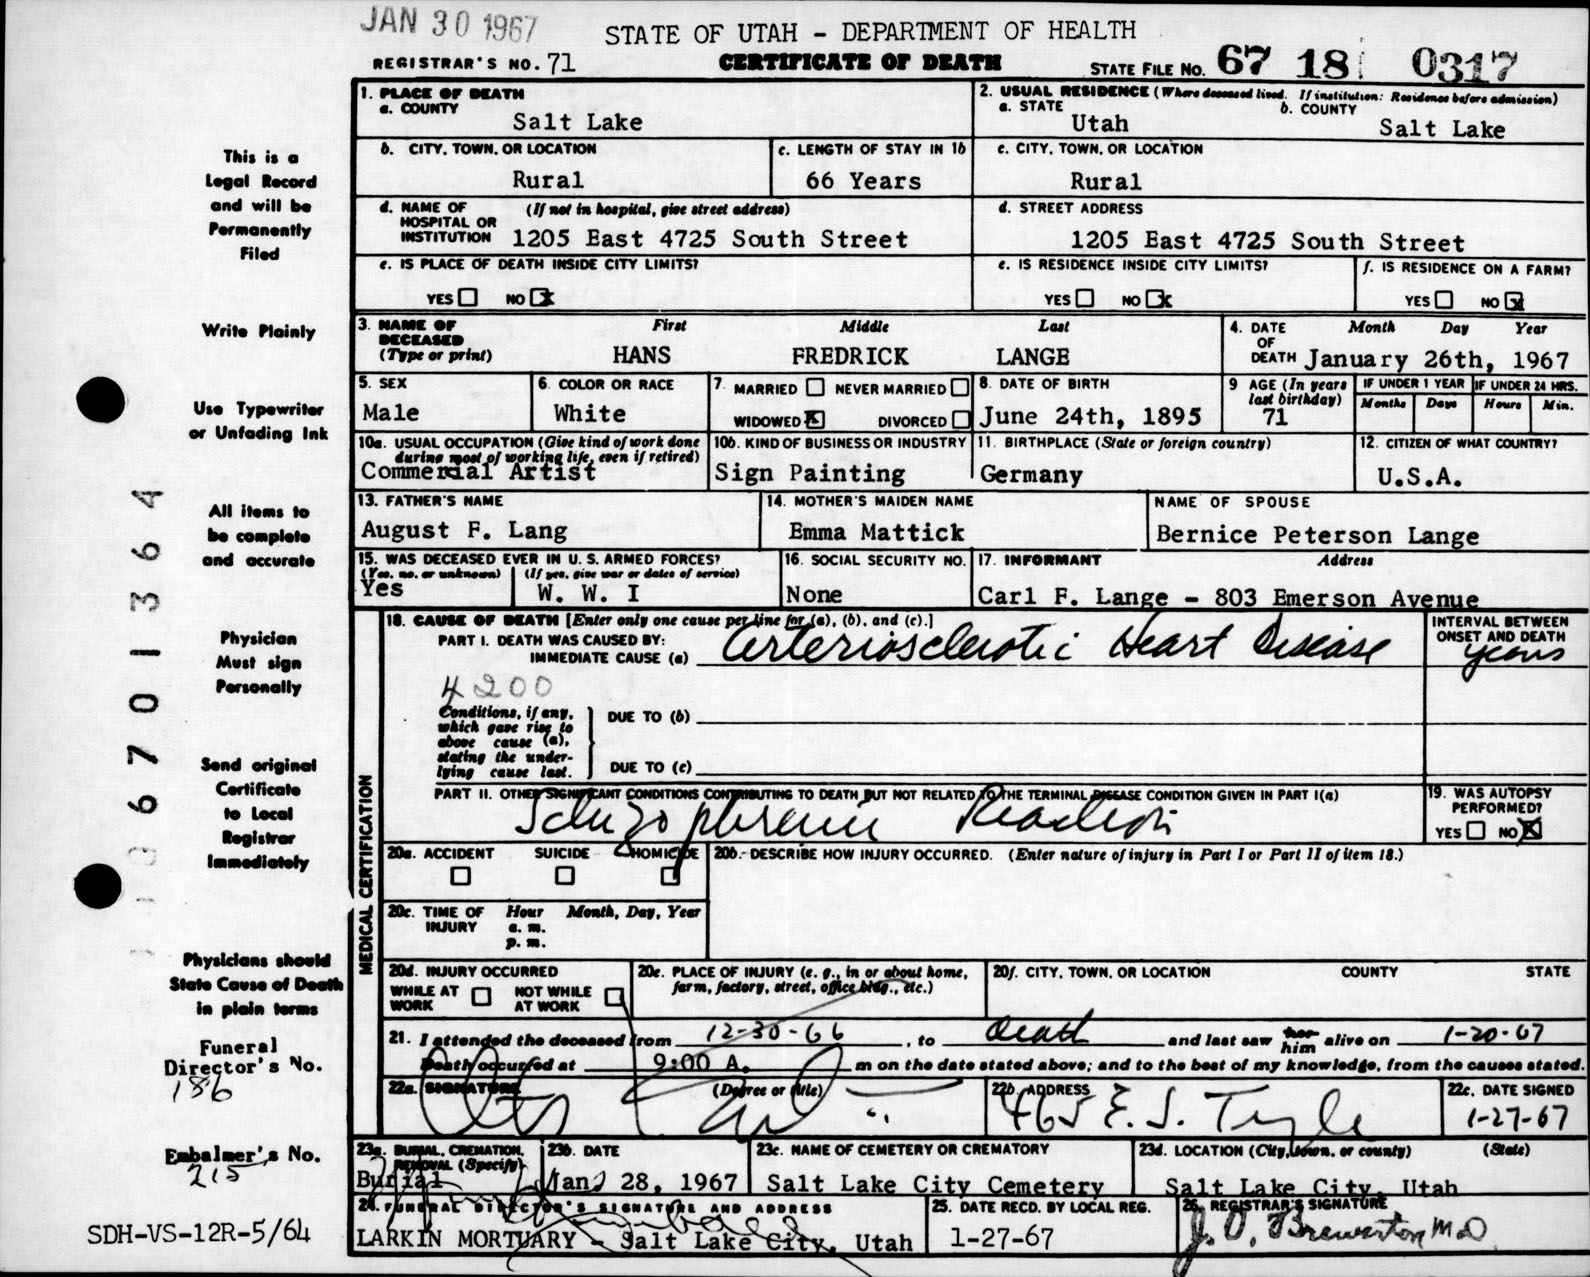 JAN 30 1967
STATE OF UTAH - DEPARTMENT OF HEALTH
REGISTRAR'S NO. 71
CERTIFICATE OF DEATH
STATE FILE NO. 67 18 0317
This is a
Legal Record
and will be
Permanently
Filed
Write Plainly
Use Typewriter
or Unfading Ink
All items to
be complete
and accurate
Physician
Must sign
Personally
Send original
Certificate
to Local
Registrar
Immediately
Physicians should
State Cause of Death
in plain terms
Funeral
Director's No.
186
Embalmer's No.
215
SDH-VS-12R-5/64
36701364
1. PLACE OF DEATH
a. COUNTY
Salt Lake
2. USUAL RESIDENCE (Where deceased lived. If institution: Residence before admission)
a. STATE
Utah
b. COUNTY
Salt Lake
b. CITY, TOWN, OR LOCATION
Rural
c. LENGTH OF STAY IN 1b
66 Years
c. CITY, TOWN, OR LOCATION
Rural
d. NAME OF HOSPITAL OR INSTITUTION (If not in hospital, give street address)
1205 East 4725 South Street
d. STREET ADDRESS
1205 East 4725 South Street
e. IS PLACE OF DEATH INSIDE CITY LIMITS?
YES NO X
e. IS RESIDENCE INSIDE CITY LIMITS?
YES NO X
f. IS RESIDENCE ON A FARM?
YES NO X
3. NAME OF DECEASED (Type or print)
First Middle Last
HANS FREDRICK LANGE
4. DATE OF DEATH
Month Day Year
January 26th, 1967
5. SEX
Male
6. COLOR OR RACE
White
7. MARRIED NEVER MARRIED
WIDOWED X DIVORCED
8. DATE OF BIRTH
June 24th, 1895
9 AGE (In years last birthday)
71
IF UNDER 1 YEAR
Months Days
IF UNDER 24 HRS.
Hours Min.
10a. USUAL OCCUPATION (Give kind of work done during most of working life, even if retired)
Commercial Artist
10b. KIND OF BUSINESS OR INDUSTRY
Sign Painting
11. BIRTHPLACE (State or foreign country)
Germany
12. CITIZEN OF WHAT COUNTRY?
U.S.A.
13. FATHER'S NAME
August F. Lang
14. MOTHER'S MAIDEN NAME
Emma Mattick
NAME OF SPOUSE
Bernice Peterson Lange
15. WAS DECEASED EVER IN U. S. ARMED FORCES?
(Yes, no, or unknown) (If yes, give war or dates of service)
Yes W. W. I
16. SOCIAL SECURITY NO.
None
17. INFORMANT Address
Carl F. Lange - 803 Emerson Avenue
MEDICAL CERTIFICATION
18. CAUSE OF DEATH [Enter only one cause per line for (a), (b), and (c).]
PART I. DEATH WAS CAUSED BY:
IMMEDIATE CAUSE (a) Arteriosclerotic Heart Disease
INTERVAL BETWEEN ONSET AND DEATH
years
4200
Conditions, if any, which gave rise to above cause (a), stating the underlying cause last.
DUE TO (b)
DUE TO (c)
PART II. OTHER SIGNIFICANT CONDITIONS CONTRIBUTING TO DEATH BUT NOT RELATED TO THE TERMINAL DISEASE CONDITION GIVEN IN PART I(a)
Schizophrenic Reaction
19. WAS AUTOPSY PERFORMED?
YES NO X
20a. ACCIDENT SUICIDE HOMICIDE
20b. DESCRIBE HOW INJURY OCCURRED. (Enter nature of injury in Part I or Part II of item 18.)
20c. TIME OF INJURY Hour Month, Day, Year
a. m.
p. m.
20d. INJURY OCCURRED
WHILE AT WORK NOT WHILE AT WORK
20e. PLACE OF INJURY (e. g., in or about home, farm, factory, street, office bldg., etc.)
20f. CITY, TOWN, OR LOCATION COUNTY STATE
21. I attended the deceased from 12-30-66, to Death and last saw her him alive on 1-20-67
Death occurred at 9:00 A. m on the date stated above; and to the best of my knowledge, from the causes stated.
22a. SIGNATURE (Degree or title)
22b. ADDRESS
465 E. S. Temple
22c. DATE SIGNED
1-27-67
23a. BURIAL, CREMATION, REMOVAL (Specify)
Burial
23b. DATE
Jan. 28, 1967
23c. NAME OF CEMETERY OR CREMATORY
Salt Lake City Cemetery
23d. LOCATION (City, town, or county) (State)
Salt Lake City, Utah
24. FUNERAL DIRECTOR'S SIGNATURE AND ADDRESS
LARKIN MORTUARY - Salt Lake City, Utah
25. DATE RECD. BY LOCAL REG.
1-27-67
26. REGISTRAR'S SIGNATURE
J. O. Brewerton M D